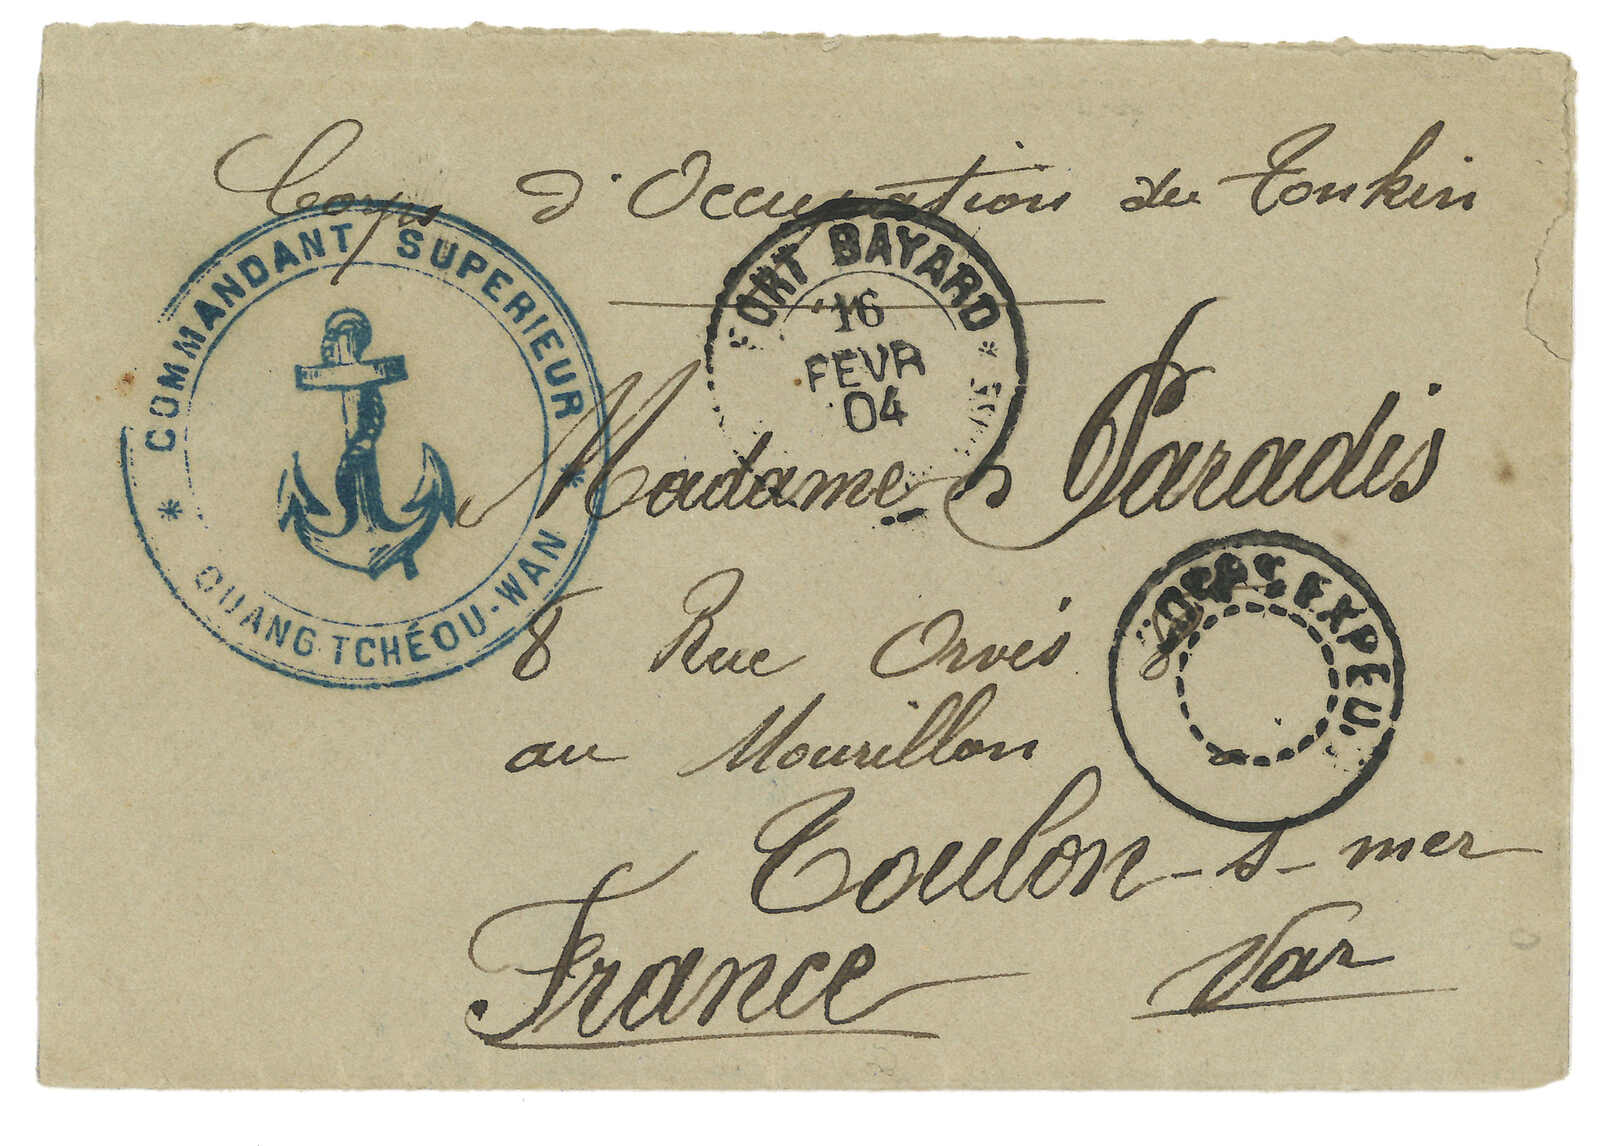 Corps d'Occupation du Tonkin
COMMANDANT SUPERIEUR
QUANG TCHÉOU-WAN
FORT BAYARD
16
FEVR
04
Madame Paradis
CORPS EXPEU
8 Rue Orvès
au Mourillon
Toulon-s-mer
France Var